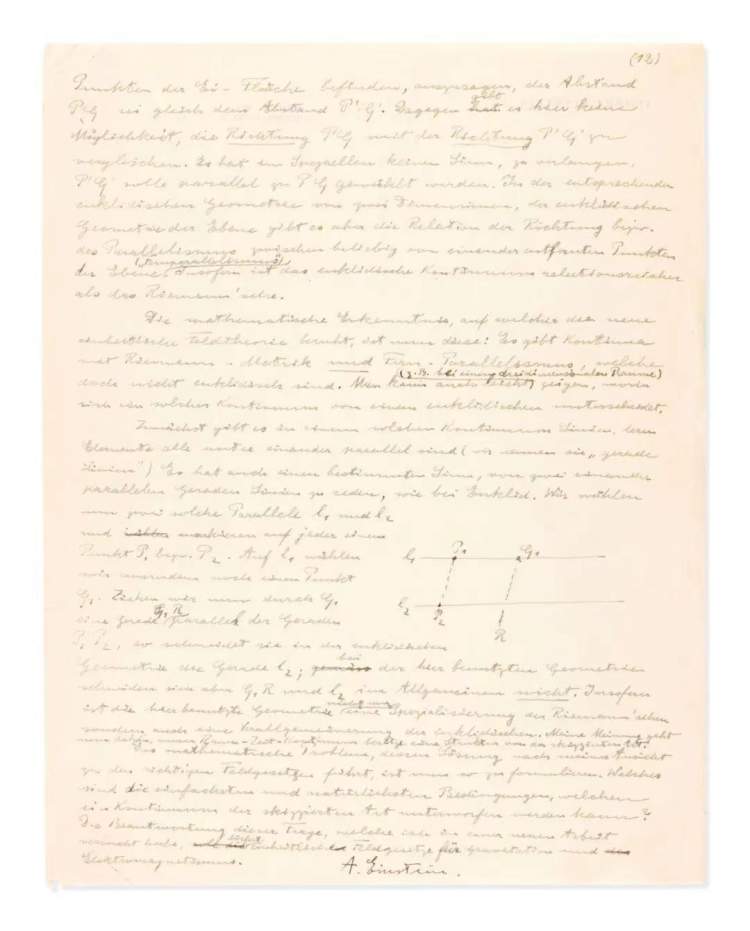 (12)
Punkten der Ei-Fläche befinden, auszusagen, der Abstand
P G sei gleich dem Abstand P'G'. Dagegen gibt es hier keine
Möglichkeit, die Richtung PG mit der Richtung P'G' zu
vergleichen. Es hat im Speziellen keinen Sinn, zu verlangen,
P'G' solle parallel zu PG gewählt werden. In der entsprechenden
euklidischen Geometrie von zwei Dimensionen, der euklidischen
Geometrie der Ebene gibt es aber die Relation der Richtung bezw.
des Parallelismus zwischen beliebig von einander entfernten Punkten
(Fernparallelismus)
der Ebene. Insofern ist das euklidische Kontinuum relationsreicher
als das Riemann'sche.
Die mathematische Erkenntnis, auf welcher die neue
einheitliche Feldtheorie beruht, ist nun diese: Es gibt Kontinua
mit Riemann-Metrik und Fern-Parallelismus, welche
(z.B. bei einem dreidimensionalen Raume)
doch nicht euklidisch sind. Man kann auch leicht zeigen, worin
sich ein solches Kontinuum von einem euklidischen unterscheidet.
Zunächst gibt es in einem solchen Kontinuum Linien, deren
Elemente alle unter einander parallel sind (wir nennen sie „gerade
Linien") Es hat auch einen bestimmten Sinn, von zwei einander
parallelen Geraden Linien zu reden, wie bei Euklid. Wir wählen
nun zwei solche Parallele l₁ und l₂
und markieren auf jeder einen
Punkt P₁ bezw. P₂. Auf l₁ wählen
wir ausserdem noch einen Punkt
G₁. Ziehen wir nun durch G₁
eine Gerade G₁ R parallel der Geraden
P₁ P₂, so schneidet sie in der euklidischen
l₁ P₁ G₁
l₂ P₂ R
Geometrie die Gerade l₂; bei der hier benutzten Geometrie
schneiden sich aber G₁R und l₂ im Allgemeinen nicht. Insofern
ist die hier benutzte Geometrie nicht nur eine Spezialisierung der Riemann'schen
sondern auch eine Verallgemeinerung der euklidischen. Meine Meinung geht
nun dahin, unser Raum-Zeit-Kontinuum besitze eine Struktur von der skizzierten Art.
Das mathematische Problem, dessen Lösung nach meiner Ansicht
zu den richtigen Feldgesetzen führt, ist nun so zu formulieren. Welches
sind die einfachsten und natürlichsten Bedingungen, welchen
ein Kontinuum der skizzierten Art unterworfen werden kann?
Die Beantwortung dieser Frage, welche ich in einer neuen Arbeit
versucht habe, liefert einheitliche Feldgesetze für Gravitation und
Elektromagnetismus.
A. Einstein.